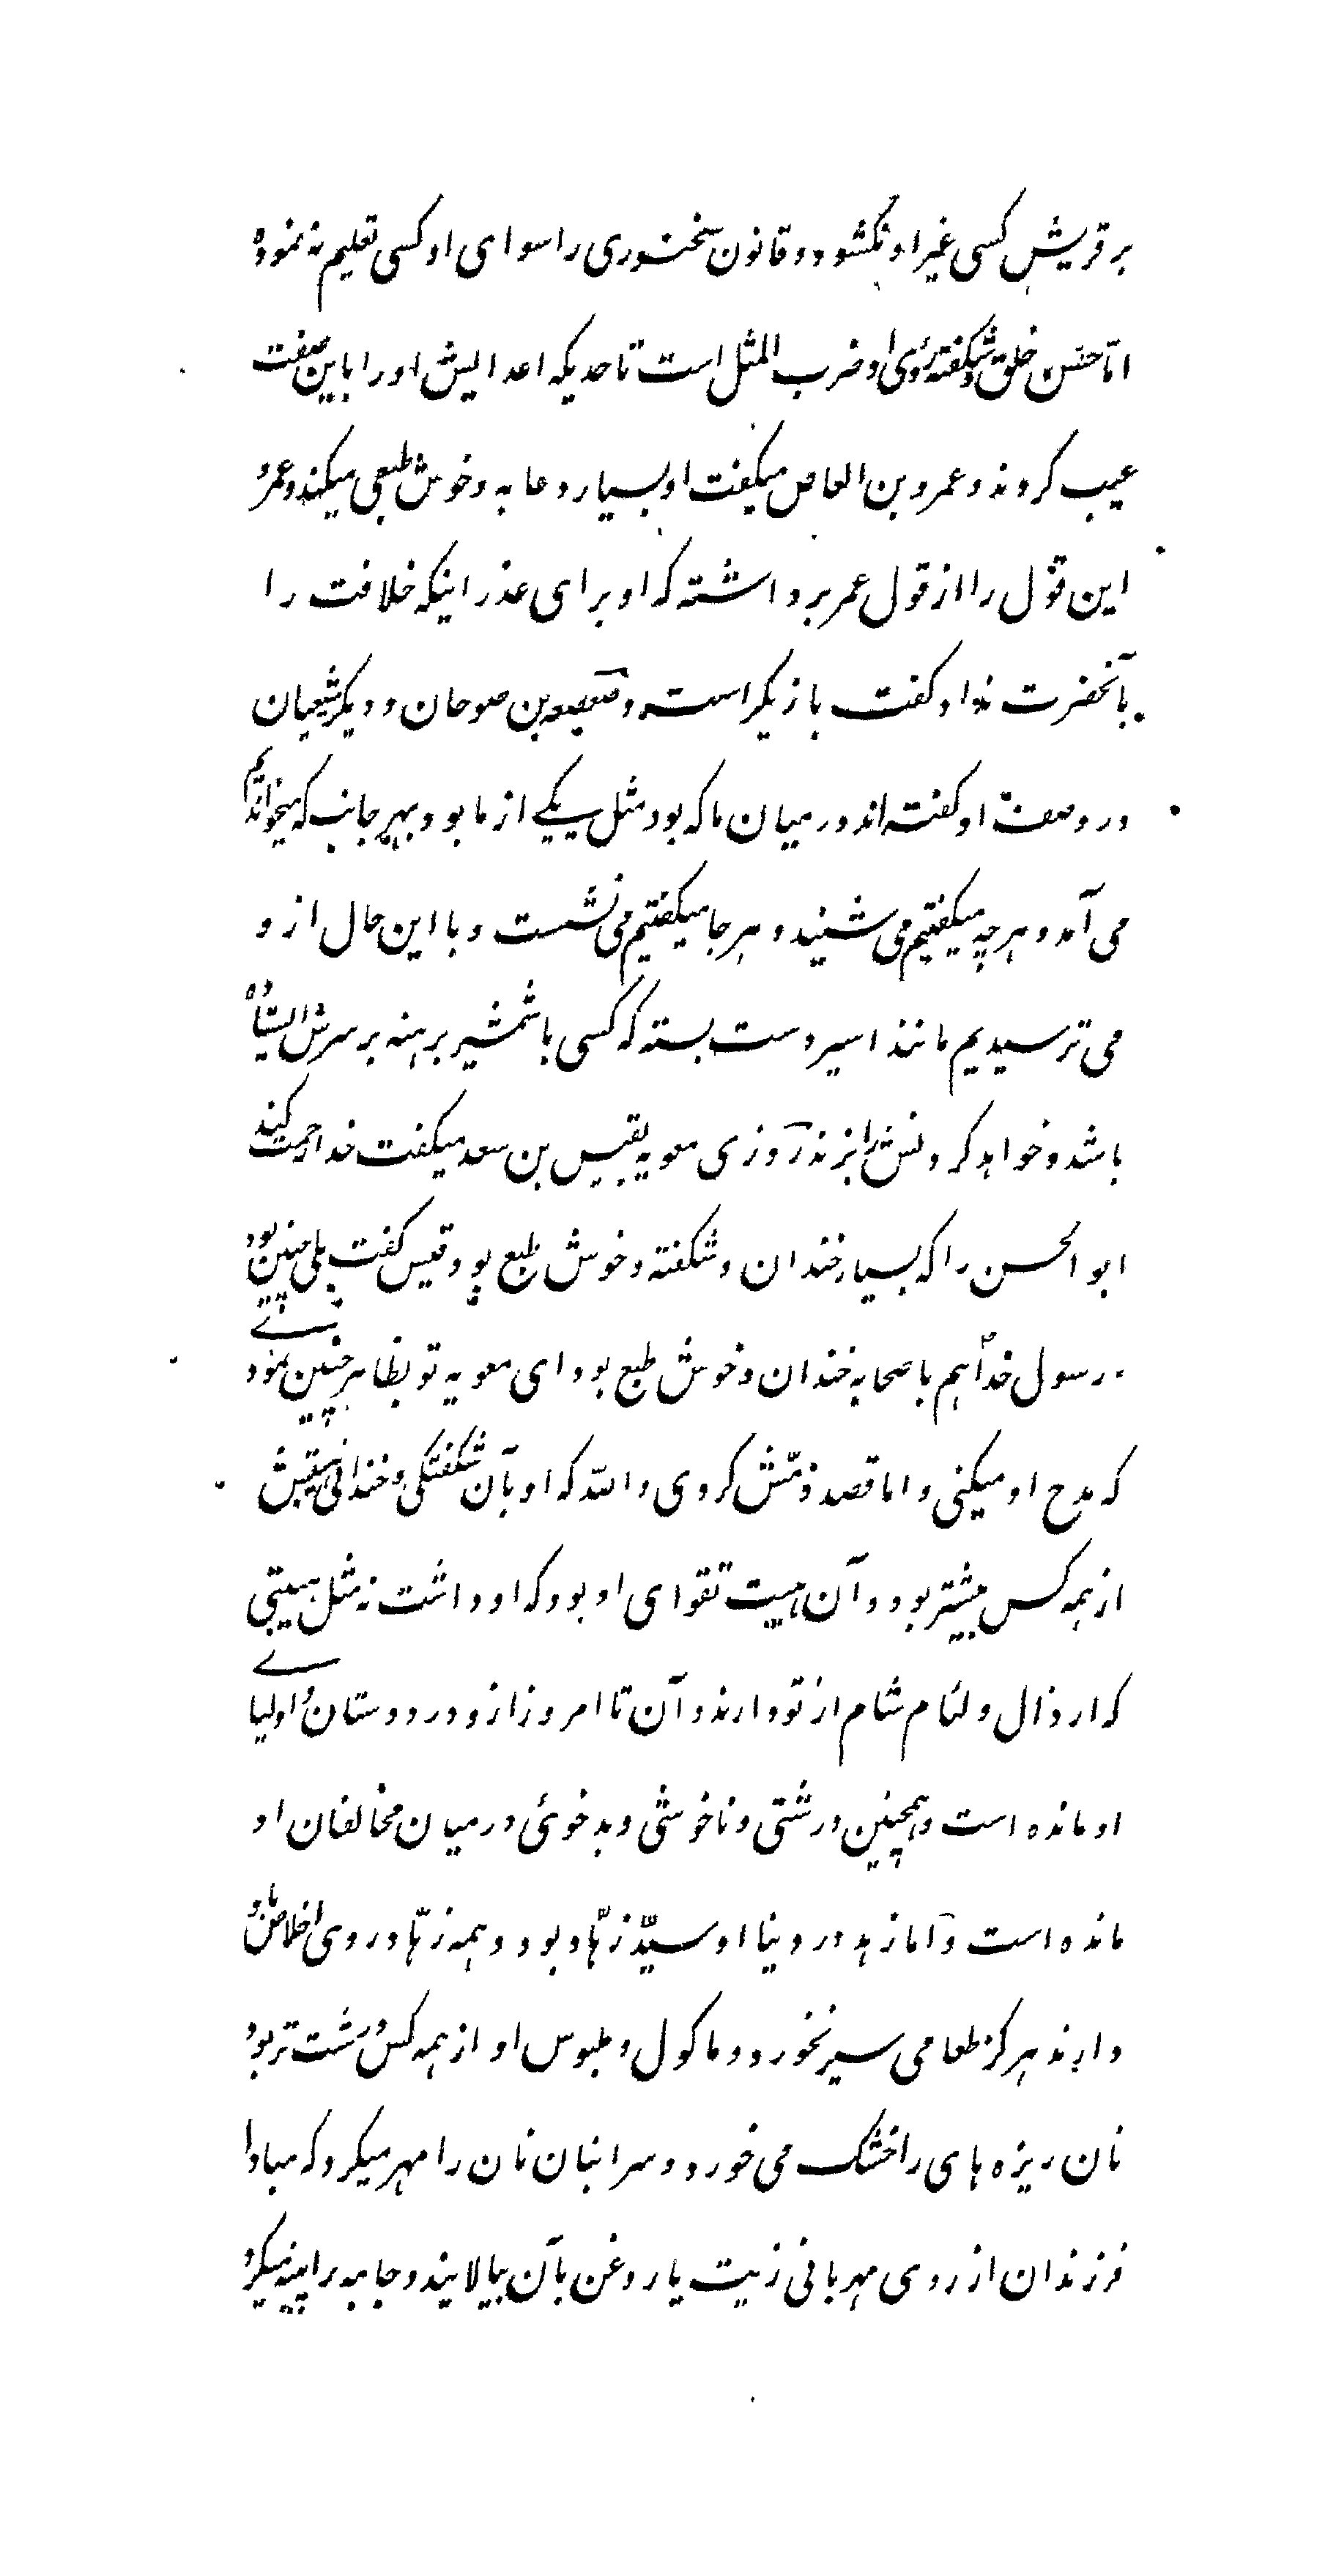 بر قریش کسی غیر او نکشود و قانون سخنوری را سوای او کسی تعلیم نه نموده
اما حسن خلق و شکفته روی او ضرب المثل است تا حدیکه اعدالیش او را باین صفت
عیب کردند و عمرو بن العاص میکفت او بسیار دعابه و خوش طبعی میکند و عمرو
این قول را از قول عمر برداشته که او برای عذر اینکه خلافت را
بآنحضرت نداد کفت بازیکر است و صعصعه بن صوحان و دیکر شیعیان
در وصف او کفته اند در میان ما که بود مثل یکے از ما بود بهر جانب که میخواندیم
می آمد و هر چه میکفتیم می شنید و هر جا میکفتیم می نشست و با این حال از و
می ترسیدیم مانند اسیر دست بسته که کسی با شمشیر برهنه بر سرش ایستاده
باشد و خواهد کردنش را بزند روزی معویه بقیس بن سعد میکفت خدا رحمت کند
ابو الحسن را که بسیار خندان و شکفته و خوش طبع بود قیس کفت بلی چنین بود
رسول خدا هم با صحابه خندان و خوش طبع بودای معویه تو بظاهر چنین نمودے
که مدح او میکنی و اما قصد ذمّش کردی واللّه که او بآن شکفتکی و خندانی هیبتش
از همه کس بیشتر بود و آن هیبت تقوای او بود که او داشت نه مثل هیبتی
که ارذال و لئام شام از تو دارند و آن تا امروز از و در دوستان و اولیاے
او مانده است و همچنین درشتی و ناخوشی و بدخوئی در میان مخالفان او
مانده است و اما زهد در دنیا او سیّد زهّاد بود و همه زهّاد روی اخلاص باو
دارند هرکز طعامی سیر نخورد و ماکول و ملبوس او از همه کس درشت تر بود
نان ریزه های را خشک می خورد و سر انبان نان را مهر میکرد که مبادا
فرزندان از روی مهربانی زیت یا روغن بآن بیالایند و جامه را پینه میکرد